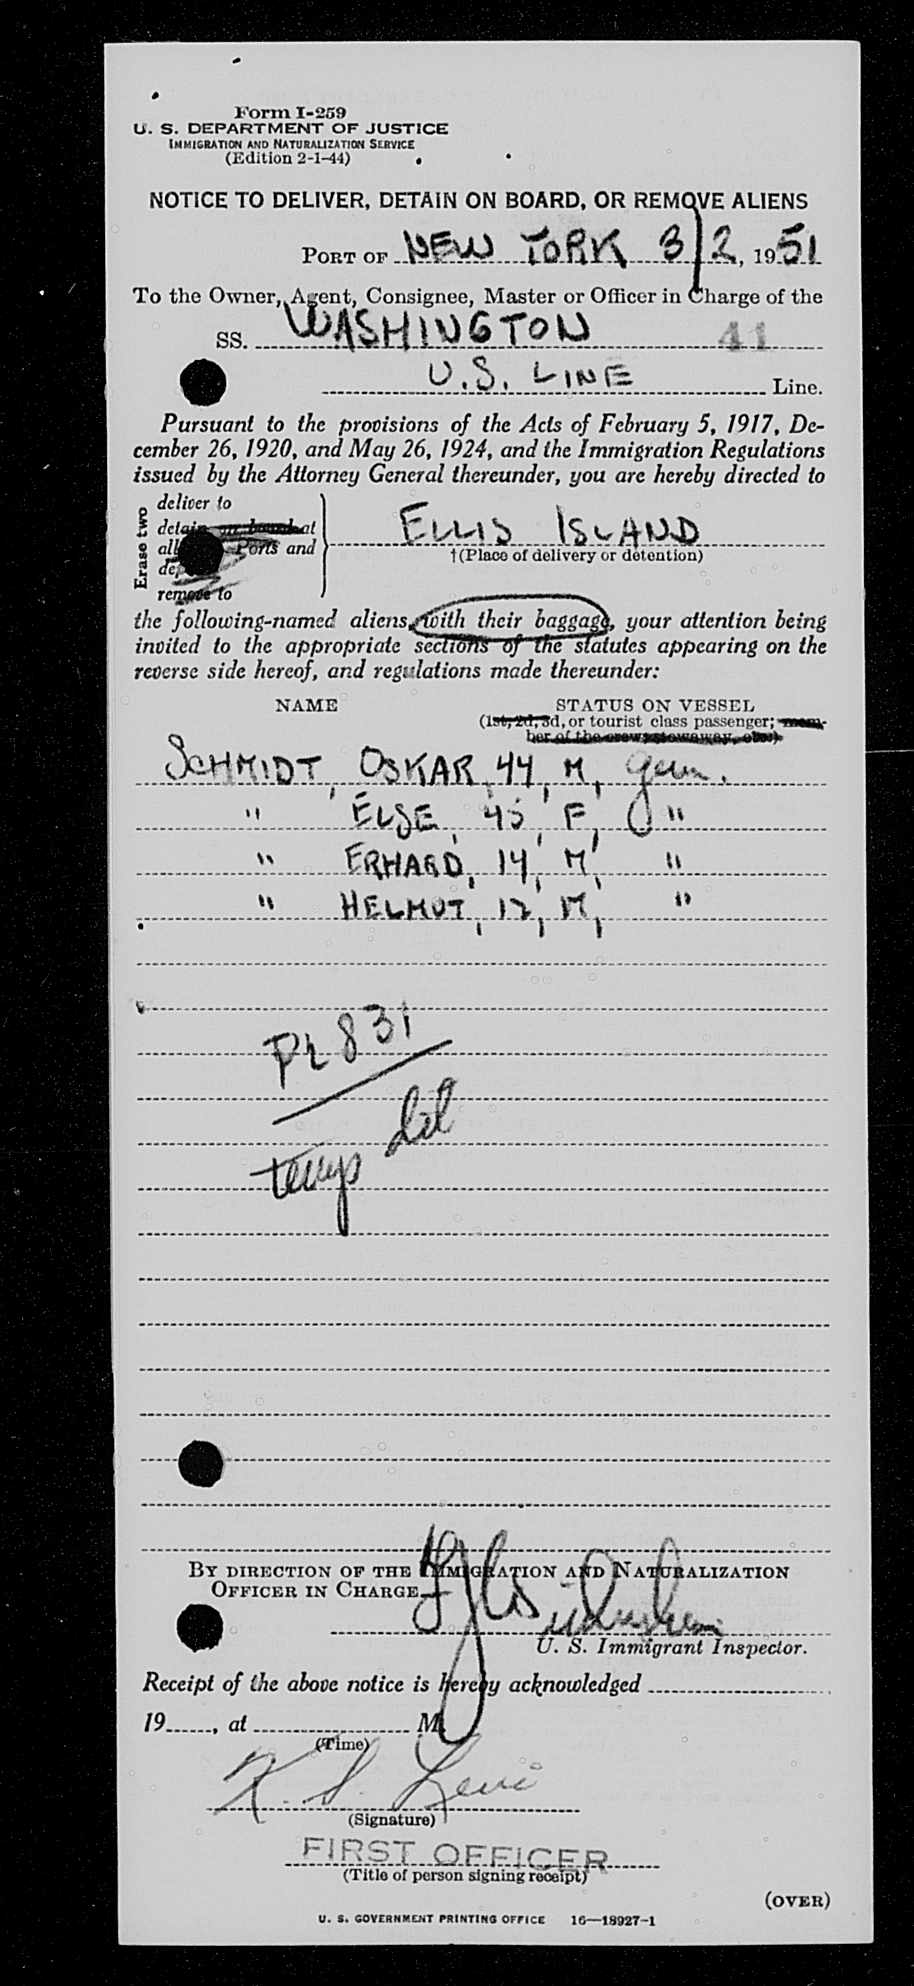 Form I-259
U. S. DEPARTMENT OF JUSTICE
IMMIGRATION AND NATURALIZATION SERVICE
(Edition 2-1-44)
NOTICE TO DELIVER, DETAIN ON BOARD, OR REMOVE ALIENS
PORT OF NEW YORK 3/2, 1951
To the Owner, Agent, Consignee, Master or Officer in Charge of the
SS. WASHINGTON 41
U.S. LINE Line.
Pursuant to the provisions of the Acts of February 5, 1917, De-
cember 26, 1920, and May 26, 1924, and the Immigration Regulations
issued by the Attorney General thereunder, you are hereby directed to
Erase two
deliver to
detain on board at
all Ports and
remove to
ELLIS ISLAND
†(Place of delivery or detention)
the following-named aliens, with their baggage, your attention being
invited to the appropriate sections of the statutes appearing on the
reverse side hereof, and regulations made thereunder:
NAME STATUS ON VESSEL
(1st, 2d, 3d, or tourist class passenger; mem-
ber of the crew, stowaway, etc.)
SCHMIDT, OSKAR, 44, M, Germ.
" ELSE, 45, F, "
" ERHARD, 14, M, "
" HELMUT, 12, M, "
831
Temp
BY DIRECTION OF THE IMMIGRATION AND NATURALIZATION
OFFICER IN CHARGE
U. S. Immigrant Inspector.
Receipt of the above notice is hereby acknowledged
19, at M.
(Time)
K. S. Levi
(Signature)
FIRST OFFICER
(Title of person signing receipt)
(OVER)
U. S. GOVERNMENT PRINTING OFFICE 16—18927-1